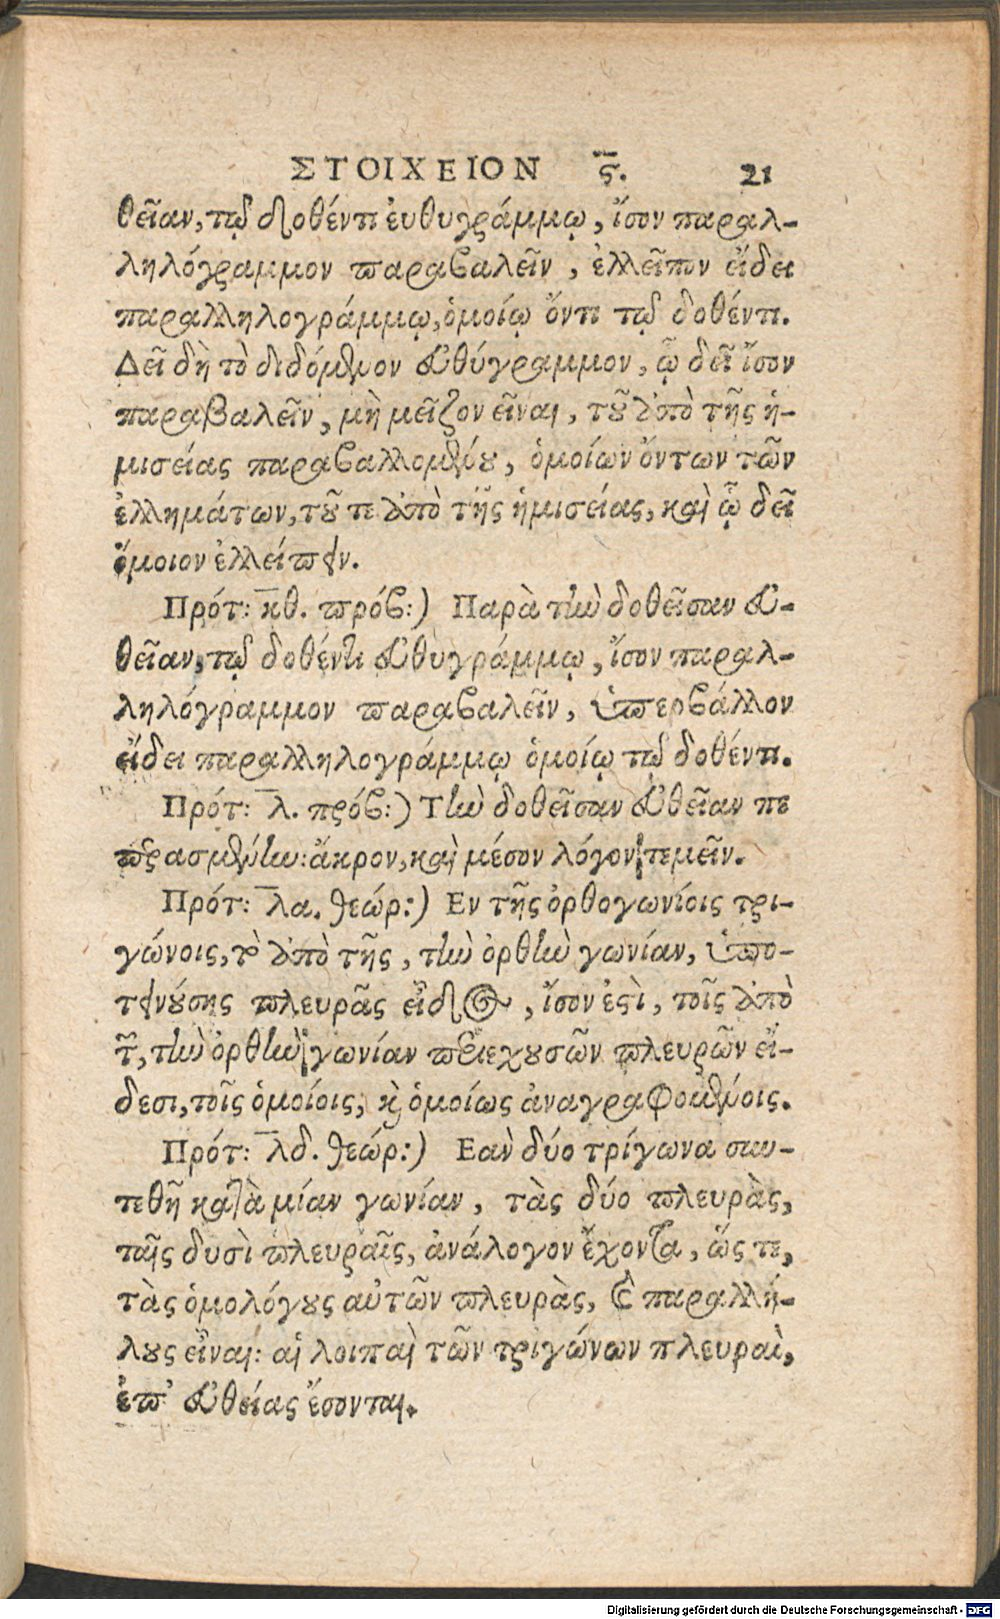 ΣΤΟΙΧΕΙΟΝ ϛ. 21
θεῖαν, τῷ δοθέντι ἐυθυγράμμῳ, ἴσον παραλ-
ληλόγραμμον παραβαλεῖν, ἐλλεῖπον εἴδει
παραλληλογράμμῳ, ὁμοίῳ ὄντι τῷ δοθέντι.
Δεῖ δὴ τὸ διδόμενον εὐθύγραμμον, ᾧ δεῖ ἴσον
παραβαλεῖν, μὴ μεῖζον εἶναι, τοῦ ἀπὸ τῆς ἡ-
μισείας παραβαλλομένου, ὁμοίων ὄντων τῶν
ἐλλημάτων, τοῦ τε ἀπὸ τῆς ἡμισείας, καὶ ᾧ δεῖ
ὅμοιον ἐλλείπειν.
Πρότ: κθ. πρόβ:) Παρὰ τὴν δοθεῖσαν εὐ-
θεῖαν, τῷ δοθέντι εὐθυγράμμῳ, ἴσον παραλ-
ληλόγραμμον παραβαλεῖν, ὑπερβάλλον
εἴδει παραλληλογράμμῳ ὁμοίῳ τῷ δοθέντι.
Πρότ: λ. πρόβ:) Τὴν δοθεῖσαν εὐθεῖαν πε
περασμένην: ἄκρον, καὶ μέσον λόγον τεμεῖν.
Πρότ: λα. θεώρ:) Εν τῆς ὀρθογωνίοις τρι-
γώνοις, τὸ ἀπὸ τῆς, τὴν ὀρθὴν γωνίαν, ὑπο-
τεινούσης πλευρᾶς εἶδος, ἴσον ἐστὶ, τοῖς ἀπὸ
τῶν, τὴν ὀρθὴν γωνίαν περιεχουσῶν πλευρῶν εἴ-
δεσι, τοῖς ὁμοίοις, καὶ ὁμοίως ἀναγραφομένοις.
Πρότ: λδ. θεώρ:) Εαν δύο τρίγωνα συν-
τεθῆ κατὰ μίαν γωνίαν, τὰς δύο πλευρὰς,
ταῖς δυσὶ πλευραῖς, ἀνάλογον ἔχοντα, ὥς τε,
τὰς ὁμολόγους αὐτῶν πλευρὰς, καὶ παραλλή-
λους εἶναι: αἱ λοιπαὶ τῶν τριγώνων πλευραὶ,
ἐπ' εὐθείας ἔσονται.
Digitalisierung gefördert durch die Deutsche Forschungsgemeinschaft - DFG